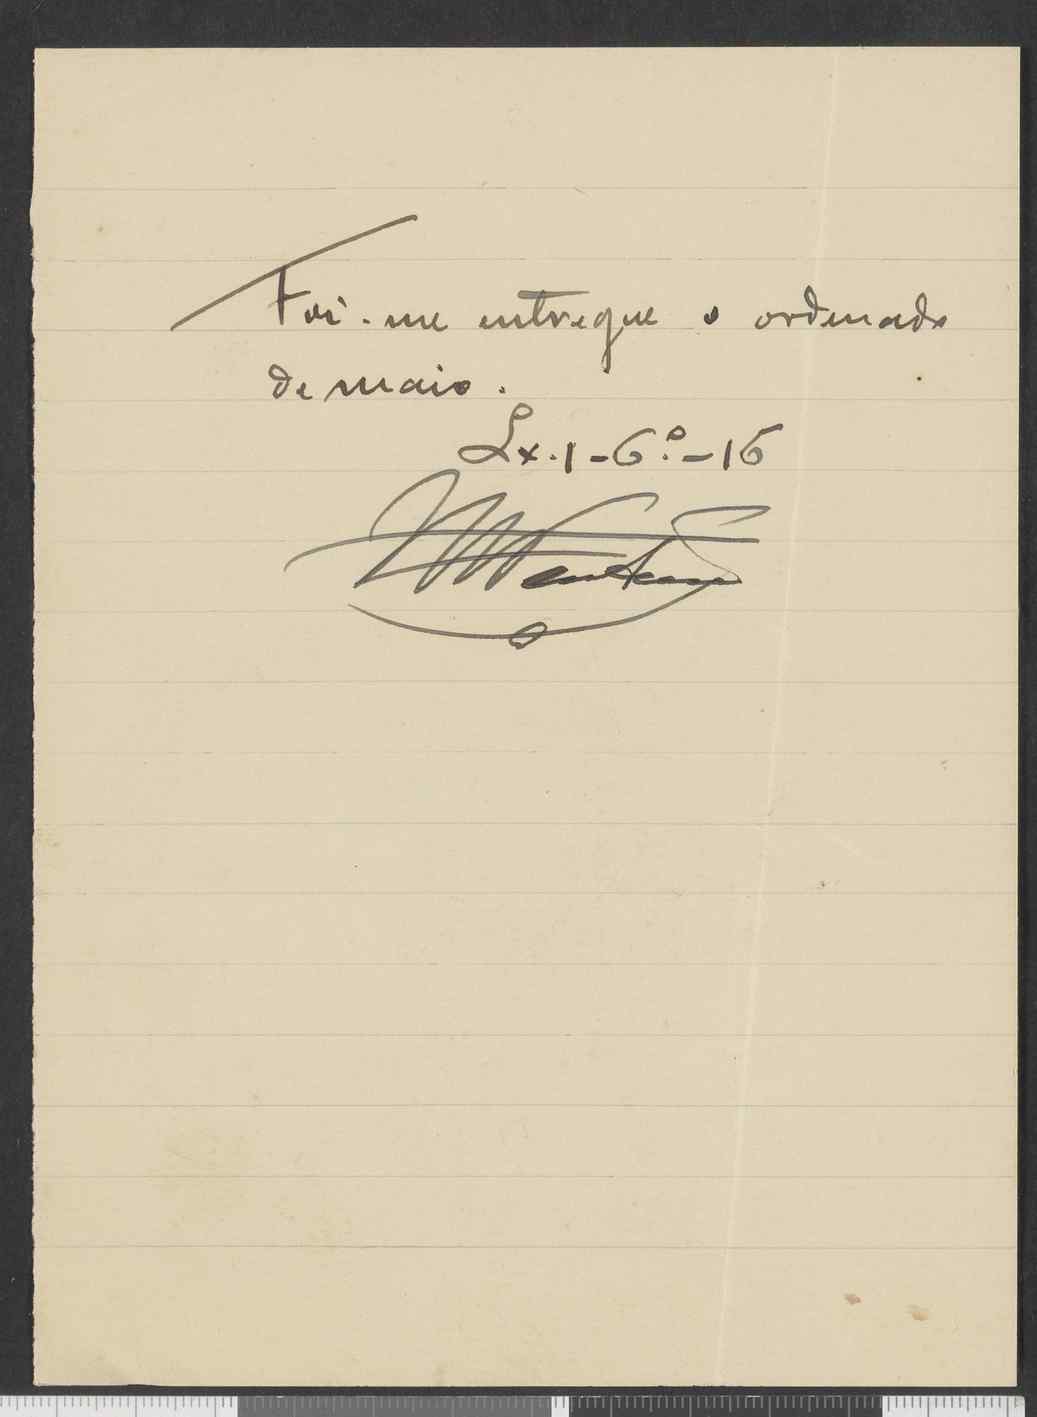 Foi-me entregue o ordenado
de maio.
Lx. 1-6º-16